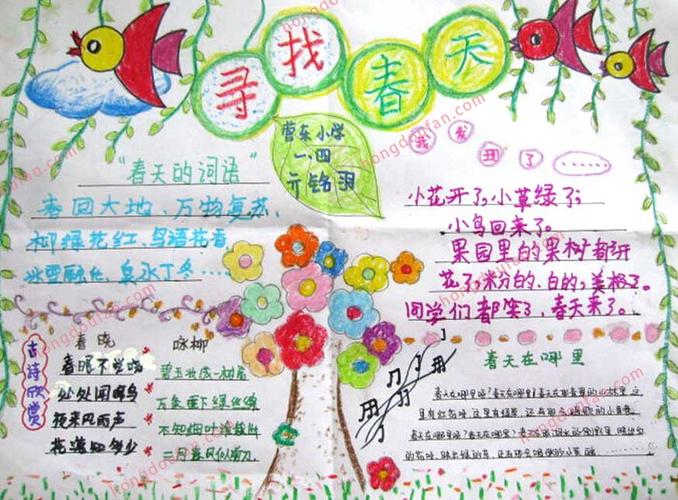 寻找春天
曹东小学
一、四
亓铭羽
我发现了……
"春天的词语"
春回大地、万物复苏、
柳绿花红、鸟语花香
冰雪融化、泉水丁冬……
小花开了，小草绿了；
小鸟回来了。
果园里的果树都开
花了，粉的、白的，美极了。
同学们都笑了，春天来了。
古诗欣赏
春晓
春眠不觉晓
处处闻啼鸟
夜来风雨声
花落知多少
咏柳
碧玉妆成一树高
万条垂下绿丝绦
不知细叶谁裁出
二月春风似剪刀
春天在哪里
春天在哪里呀？春天在哪里？春天在那青翠的山林里 这
里有红花呀 这里有绿草 还有那会唱歌的小黄鹂
春天在哪里呀？春天在哪里？春天在那湖水的倒影里 映出红
的花呀 映出绿的草 还有那会唱歌的小黄鹂
hongdoufan.com